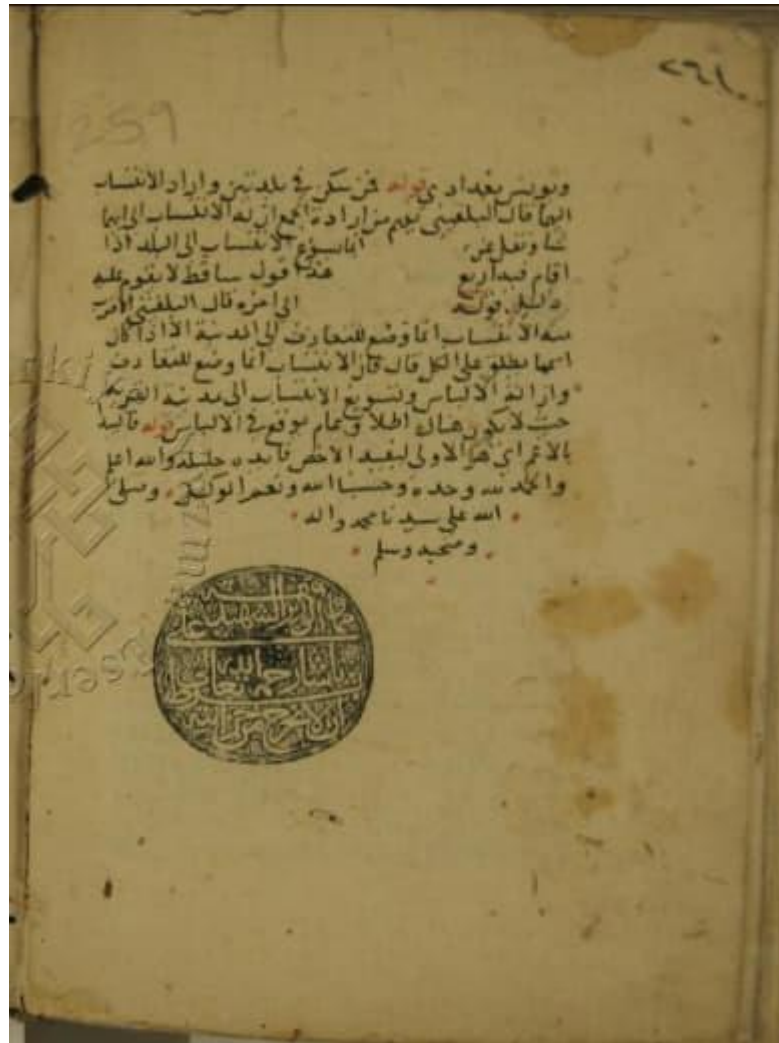 ٢٦١
259
وتونس بغدادي قوله فمن سكن في بلدتين واراد الانتساب
اليهما قال البلقيني يعلم من ارادة الجمع ان له الانتساب الى ايهما
شا ونقل عن انما يسوغ الانتساب الى البلد اذا
اقام فيه اربع هذا قول ساقط لا يقوم عليه
دليل قوله الى اخره قال البلقيني
الانتساب انما وضع للتعارف الى المدينة الا اذا كان
اسمها يطلق على الكل قال فان الانتساب انما وضع للتعارف
وازالة الالباس وتسويغ الانتساب الى مدينة القرية
حيث لا يكون هناك اطلاق عام موقع في الالباس قوله فاليبدا
بالاعم اي هو الاولى ليفيد الاخص فايدة جليلة والله اعلم
والحمد لله وحده وحسبنا الله ونعم الوكيل وصلى
الله على سيدنا محمد واله
وصحبه وسلم